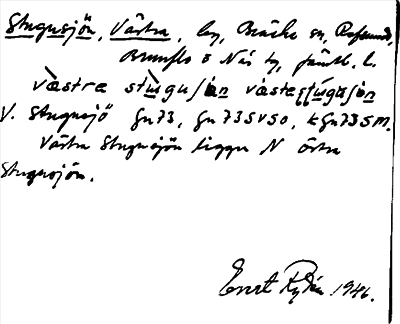 Stugusjön, Västra, by, Bräcke sn, Refsund,
Brunflo o Näs tg, Jämtl. l.
västra stugusjön västesstugusjön
V. Stugusjö Gn73, Gn73SVSO, kGn73SM.
Västra Stugusjön ligger N Östra
Stugusjön.
Ernst Rydén 1946.